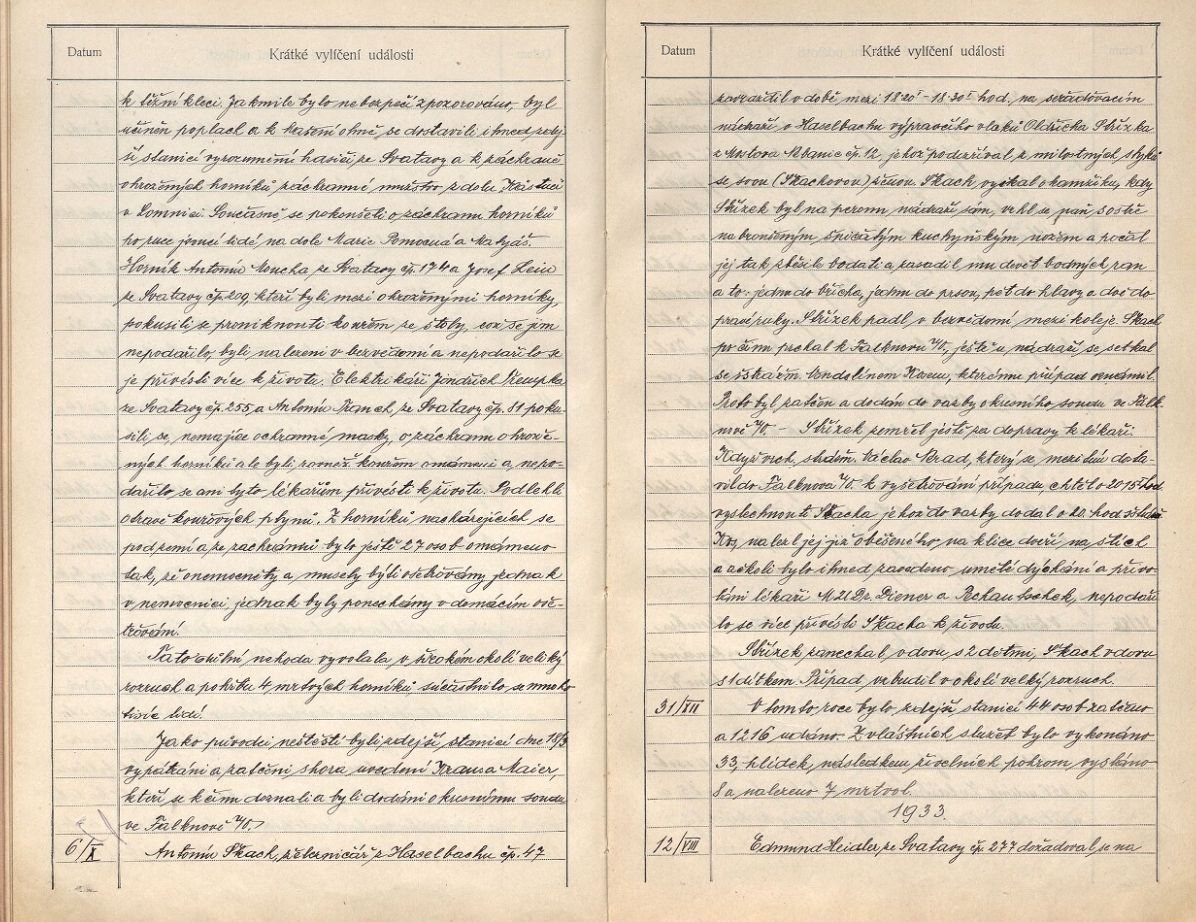 Datum
Krátké vylíčení události
k těžní kleci. Jakmile bylo nebezpečí zpozorováno, byl
učiněn poplach a k hašení ohně se dostavili ihned zdej-
ší stanicí vyrozumění hasiči ze Svatavy a k záchraně
ohrožených horníků záchranné mužstvo z dolu
v Lomnici. Současně se pokoušeli o záchranu horníků
po ruce jsoucí lidé na dole Marie Pomocná a Matyáš.
Horník Antonín Moucha ze Svatavy čp. 174 a Josef Lein
ze Svatavy čp. 209, kteří byli mezi ohroženými horníky,
pokusili se proniknouti kouřem ze štoly, což se jim
nepodařilo, byli nalezeni v bezvědomí a nepodařilo se
je přivésti více k životu. Elektrikáři Jindřich
ze Svatavy čp. 255, a Antonín ze Svatavy čp. 81 poku-
sili se, nemajíce ochranné masky, o záchranu ohrože-
ných horníků ale byli rovněž kouřem omámeni a nepo-
dařilo se ani tyto lékařům přivésti k životu. Podlehli
otravě kouřových plynů. Z horníků nacházejících se
pod zemí a ze zachránců bylo ještě 27 osob omámeno
tak, že onemocněly a musely býti ošetřovány jednak
v nemocnici jednak byly ponechány v domácím oše-
třování.
Tato důlní nehoda vyvolala v širokém okolí veliký
rozruch a pohřbu 4 mrtvých horníků súčastnilo se mnoho
tisíc lidí.
Jako původci neštěstí byli zdejší stanicí dne 18/3
vypátráni a zatčeni shora uvedení Kraus a Maier,
kteří se k činu doznali a byli dodáni okresnímu soudu
ve Falknově n/O.
6/X
Antonín Skach, železničář z Haselbachu čp. 47
Datum
Krátké vylíčení události
zavraždil v době mezi 18.20 - 18.30 hod. na seřaďovacím
nádraží v Haselbachu výpravčího vlaků Oldřicha Střízka
z čp. 12, jehož podezříval z milostných styků
se svou (Skachovou) ženou. Skach vyčkal okamžiku, kdy
Střízek byl na peronu nádraží sám, vrhl se naň s ostře
nabroušeným špičatým kuchyňským nožem a počal
jej tak zběsile bodati a zasadil mu devět bodných ran
a to: jednu do břicha, jednu do prsou, pět do hlavy a dvě do
pravé ruky. Střízek padl v bezvědomí mezi koleje. Skach
po činu prchal k Falknovu n/O, ještě u nádraží se setkal
se Vendolínem kterému případ oznámil.
Proto byl zatčen a dodán do vazby okresního soudu ve Falk-
nově n/O. - Střízek zemřel ještě za dopravy k lékaři.
Když vrch. strážm. Václav Brad, který se mezitím dosta-
vil do Falknova n/O. k vyšetřování případu, chtěl o 20.15 hod
vyslechnout Skacha jehož do vazby dodal o 20. hod
nalezl jej již oběšeného na klice dveří na
a ačkoli bylo ihned zavedeno umělé dýchání a přivo-
láni lékaři MUDr. Diener a nepodaři
lo se více přivésti Skacha k životu.
Střízek zanechal vdovu s 2 dětmi, Skach vdovu
s 1 dítkem. Případ vzbudil v okolí velký rozruch.
31/XII
V tomto roce bylo zdejší stanicí 44 osob zatčeno
a 1216 udáno. Zvláštních služeb bylo vykonáno
33, hlídek následkem živelních pohrom vysláno
8 a nalezeno 7 mrtvol.
1933.
12/VIII
Edmund Heidler, ze Svatavy čp. 277 dožadoval se na